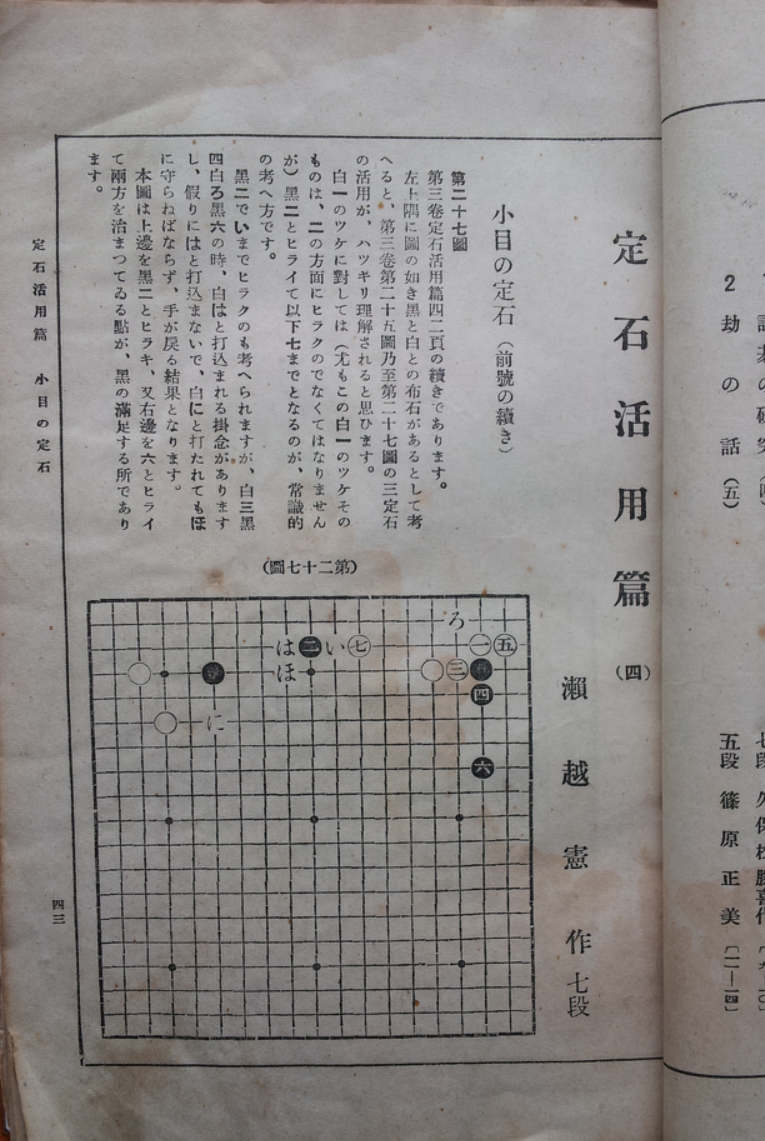 定石活用篇(四)
瀬越憲作七段
小目の定石(前號の續き)
第二十七圖
第三卷定石活用篇四二頁の續きであります。
左上隅に圖の如き黑と白との布石があるとして考
へると、第三卷第二十五圖乃至第二十七圖の三定石
の活用が、ハツキリ理解されると思ひます。
白一のツケに對しては(尤もこの白一のツケその
ものは、二の方面にヒラクのでなくてはなりません
が)黑二とヒライて以下七までとなるのが、常識的
の考へ方です。
黑二でいまでヒラクのも考へられますが、白三黑
四白ろ黑六の時、白はと打込まれる掛念があります
し、假りにはと打込まないで、白にと打たれてもほ
に守らねばならず、手が戾る結果となります。
本圖は上邊を黑二とヒラキ、又右邊を六とヒライ
て兩方を治まつてゐる點が、黑の滿足する所であり
ます。
(第二十七圖)
ろ
は二い七一五
ほ三
四
に
六
定石活用篇 小目の定石
四三
2劫の話(五)
五段 篠原正美〔一一—一四〕